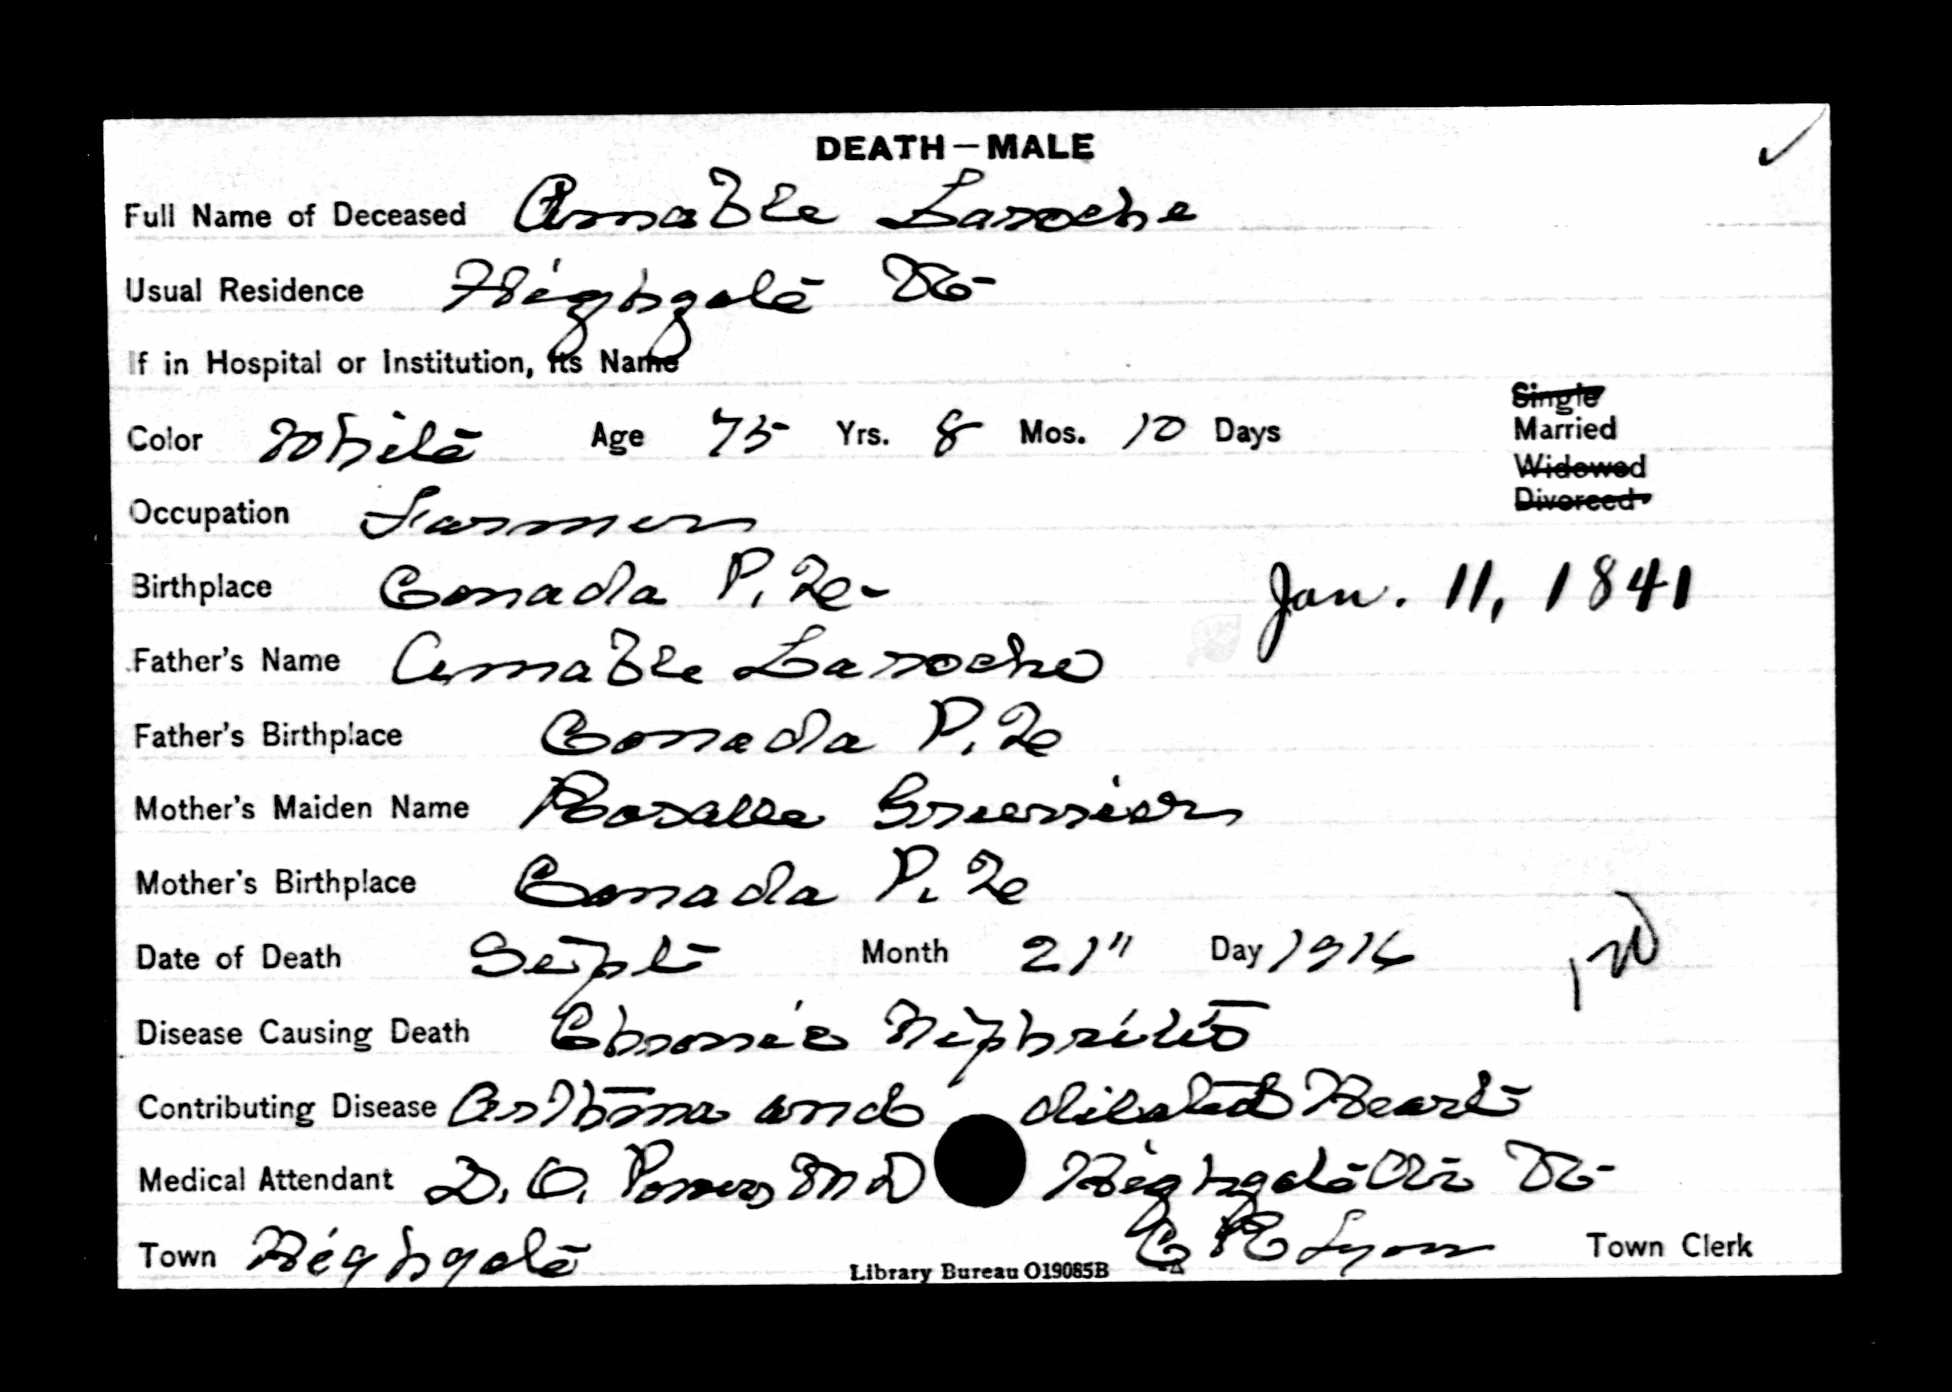 ✓
DEATH—MALE
Full Name of Deceased Amable Laroche
Usual Residence Highgate Vt-
If in Hospital or Institution, its Name
Color White Age 75 Yrs. 8 Mos. 10 Days
Single
Married
Widowed
Divorced
Occupation Farmer
Birthplace Canada P. Q- Jan. 11, 1841
Father's Name Amable Laroche
Father's Birthplace Canada P. Q
Mother's Maiden Name Rosalle Grierrier
Mother's Birthplace Canada P. Q
Date of Death Sept Month 21" Day 1916
Disease Causing Death Chronic Nephritis
Contributing Disease Asthma and dilated Heart
Medical Attendant D. O. Powers M D Highgate Ctr Vt-
Town Highgate C H E Lyon Town Clerk
Library Bureau O19085B